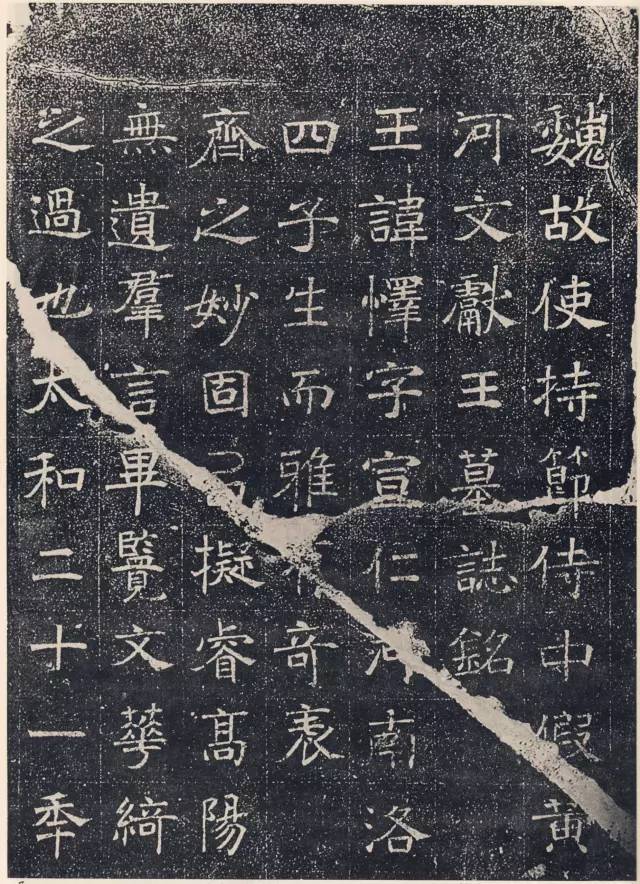 魏故使持節侍中假黃
河文獻王墓誌銘
王諱懌字宣仁河南洛
四子生而雅有奇表
齊之妙固㠯擬睿高陽
無遺羣言畢覽文華綺
之過也太和二十一秊